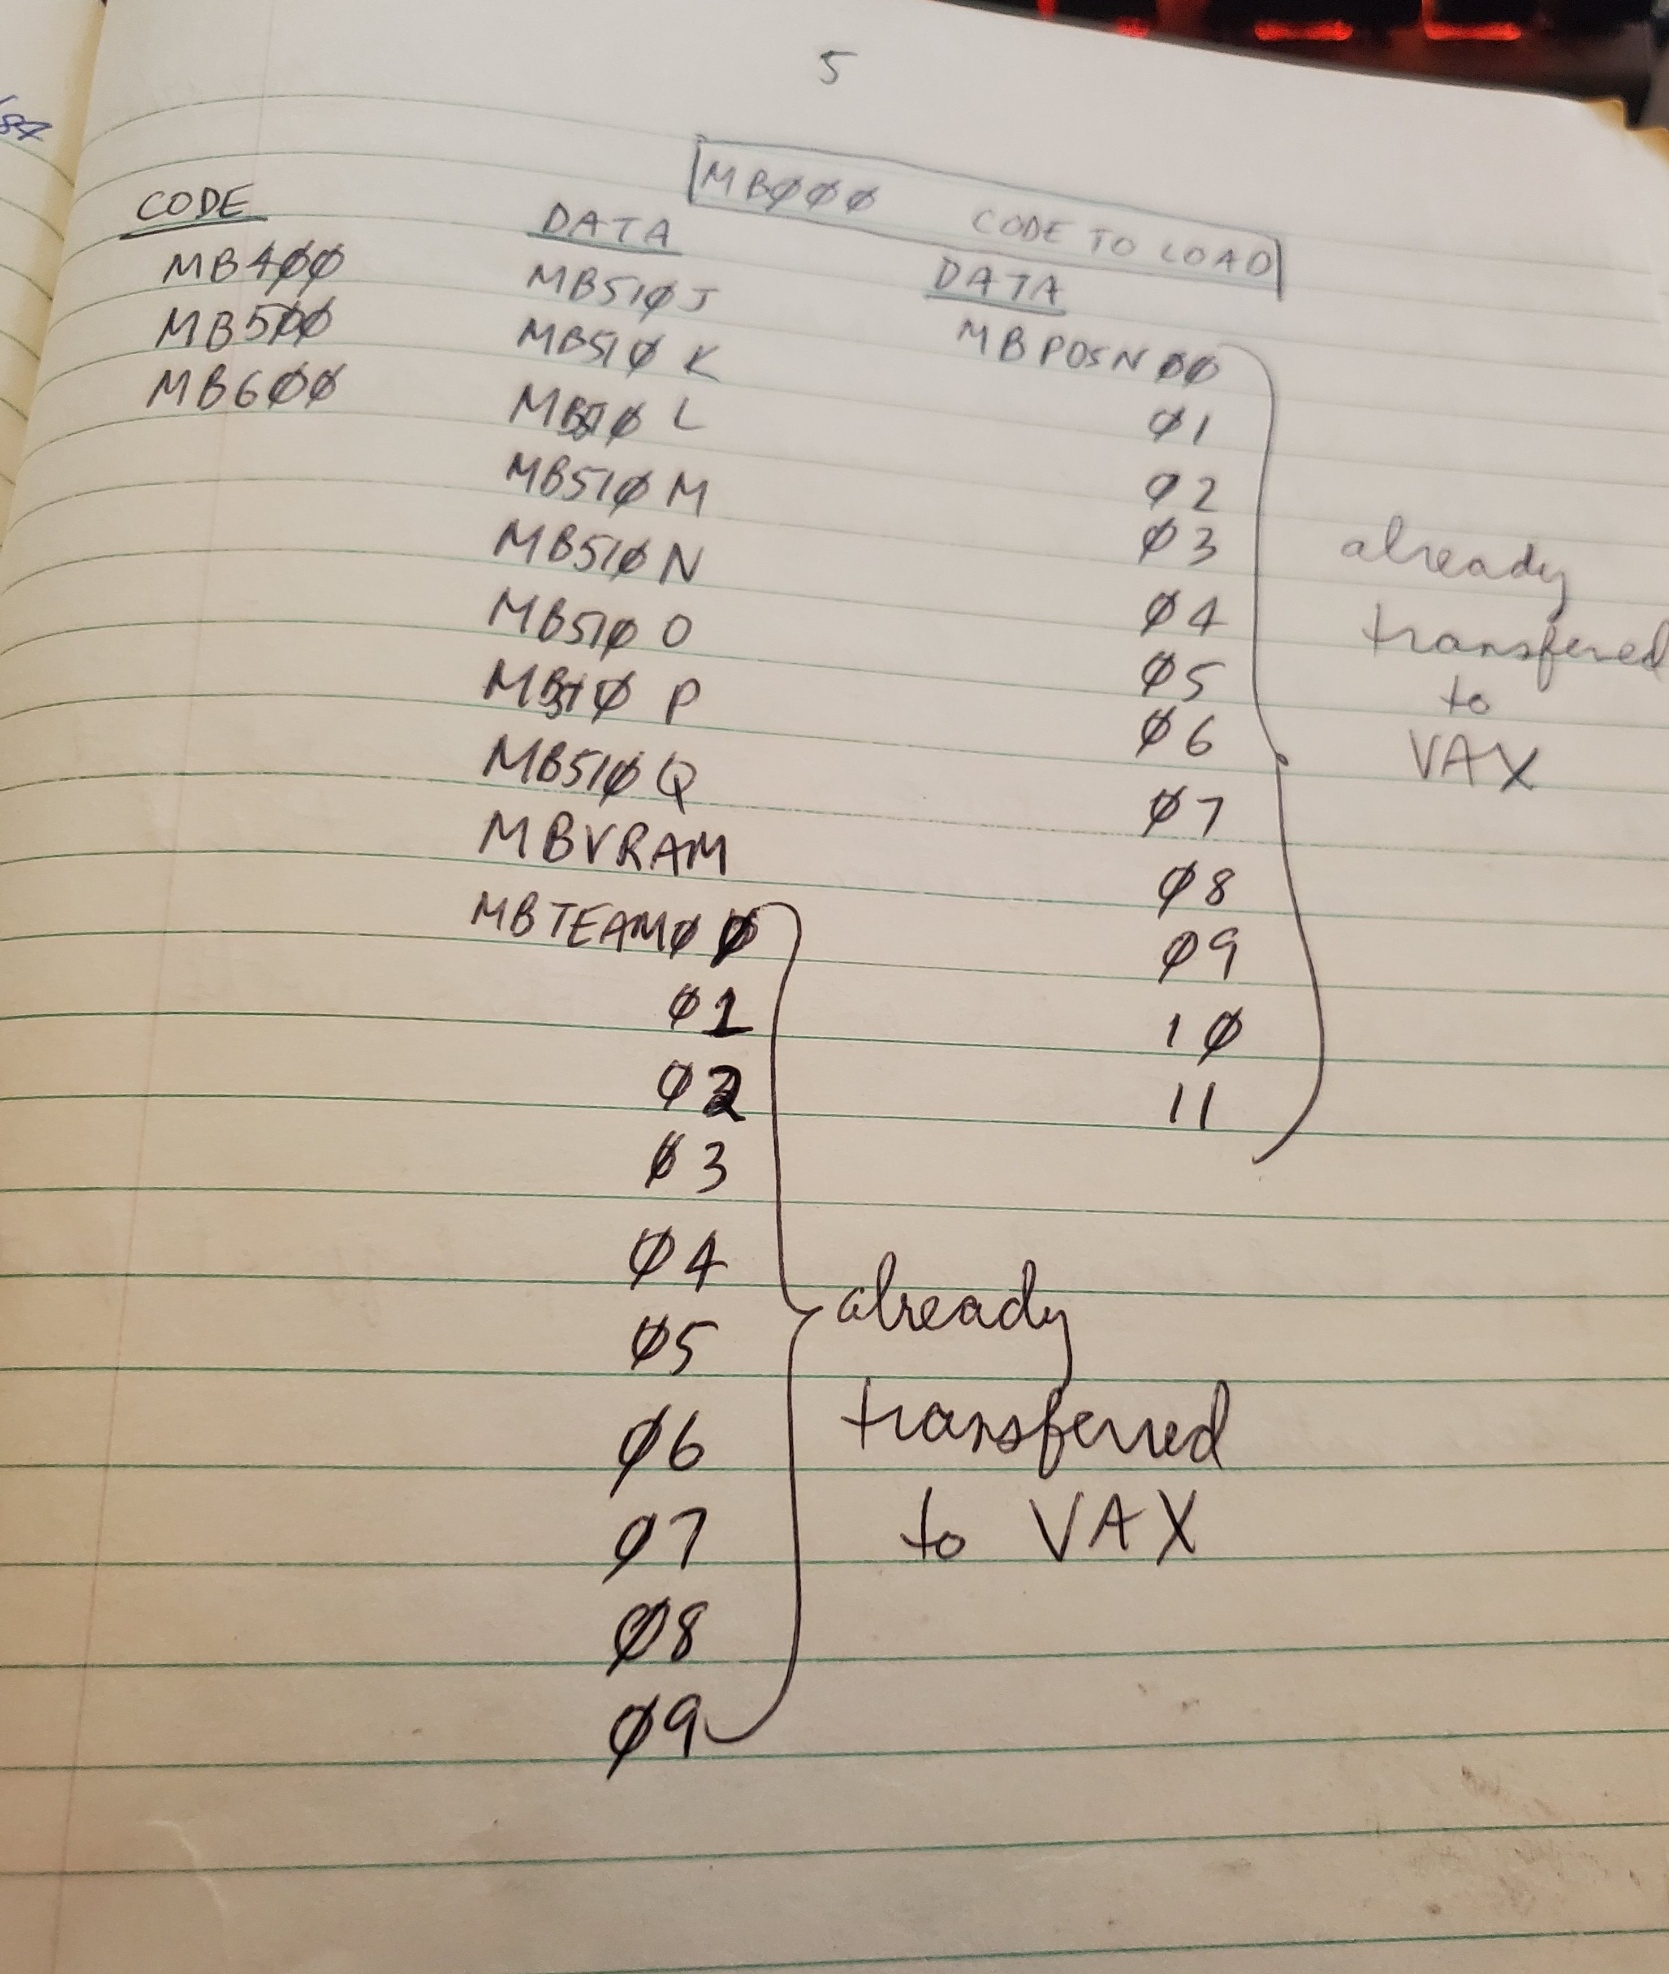 5
MBØØØ CODE TO LOAD
CODE
MB4ØØ
MB5ØØ
MB6ØØ
DATA
MB51ØJ
MB51Ø K
MB51Ø L
MB51Ø M
MB51Ø N
MB51Ø O
MB51Ø P
MB51Ø Q
MBVRAM
MBTEAMØØ
Ø1
Ø2
Ø3
Ø4
Ø5
Ø6
Ø7
Ø8
Ø9
already
transferred
to VAX
DATA
MBPOSNØØ
Ø1
Ø2
Ø3
Ø4
Ø5
Ø6
Ø7
Ø8
Ø9
1Ø
11
already
transfered
to
VAX